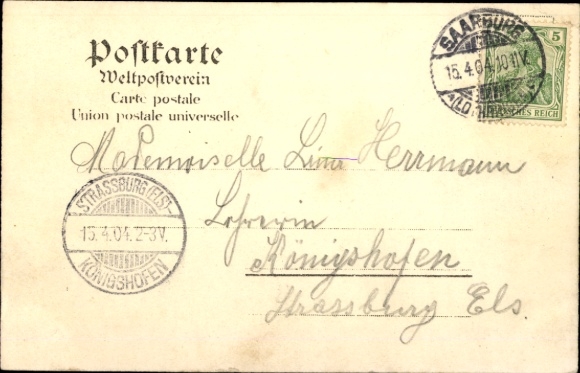 Postkarte
Weltpostverein
Carte postale
Union postale universelle
SAARBURG
15.4.04.10-11V.
5
DEUTSCHES REICH
Mademoiselle Lina Herrmann
Lehrerin
Königshofen
Strassburg Els.
STRASSBURG (ELS)-
15.4.04.2-3V.
KÖNIGSHOFEN